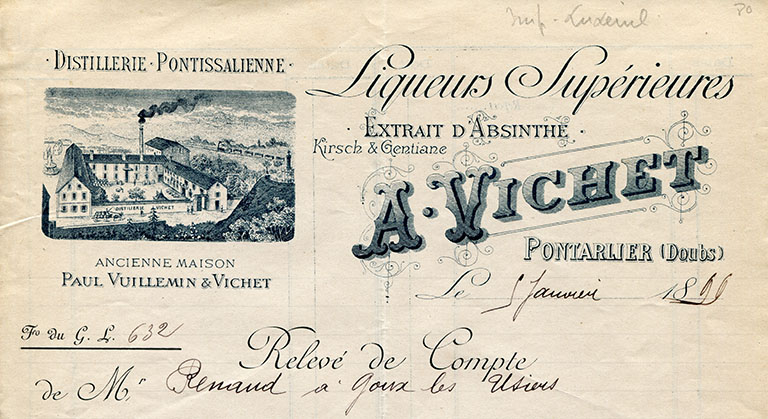 Imp. Luxeuil
30
DISTILLERIE · PONTISSALIENNE
Liqueurs Supérieures
· EXTRAIT D'ABSINTHE ·
Kirsch & Gentiane
A. VICHET
DISTILLERIE A. VICHET
ANCIENNE MAISON
PAUL VUILLEMIN & VICHET
PONTARLIER (Doubs)
Le 5 Janvier 1899
Fo du G. L. 632
Relevé de Compte
de Mr Renaud à Goux les Usiers